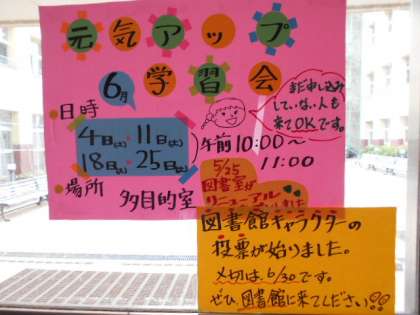 元気アップ
6月 学習会
まだ申し込み
していない人も
来てOKです。
日時
4日(火)・11日(火)
18日(火)・25日(火)
午前10:00〜
11:00
場所
多目的室
5/25
図書室が
リニューアル
しました
図書館キャラクターの
投票が始りました。
〆切は、6/30です。
ぜひ、図書館に来てください!!